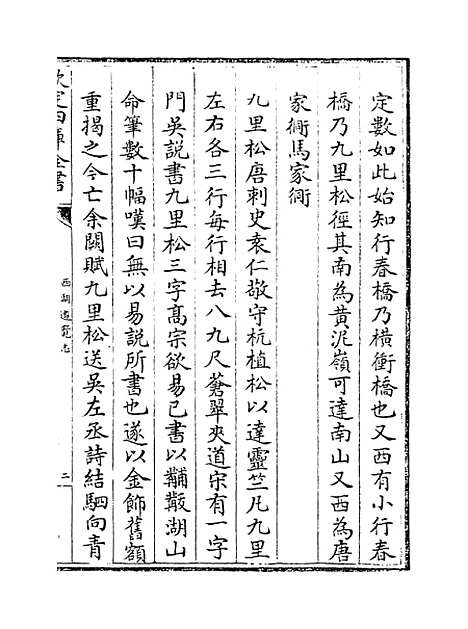 定數如此始知行春橋乃橫衝橋也又西有小行春
橋乃九里松徑其南為黃泥嶺可達南山又西為唐
家衕馬家衕
九里松唐刺史袁仁敬守杭植松以達靈竺凡九里
左右各三行每行相去八九尺蒼翠夾道宋有一字
門吳說書九里松三字髙宗欲易已書以黼黻湖山
命筆數十幅嘆曰無以易說所書也遂以金飾舊額
重揭之今亡余闕賦九里松送吳左丞詩結駟向青
欽定四庫全書
西湖遊覽志
二